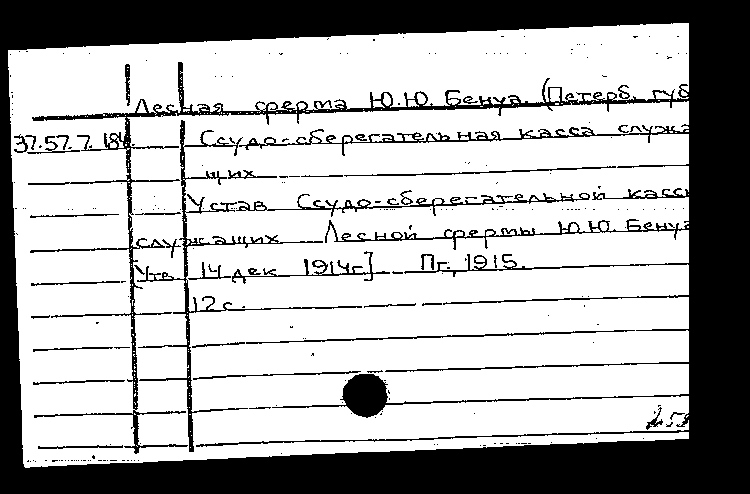 Лесная ферма Ю.Ю. Бенуа. (Петерб. губ
37.57.7.184 Ссудо-сберегательная касса служа
щих
Устав Ссудо-сберегательной касс
служащих Лесной фермы Ю.Ю. Бенуа
Утв 14 дек 1914г.] Пг., 1915.
12 с.